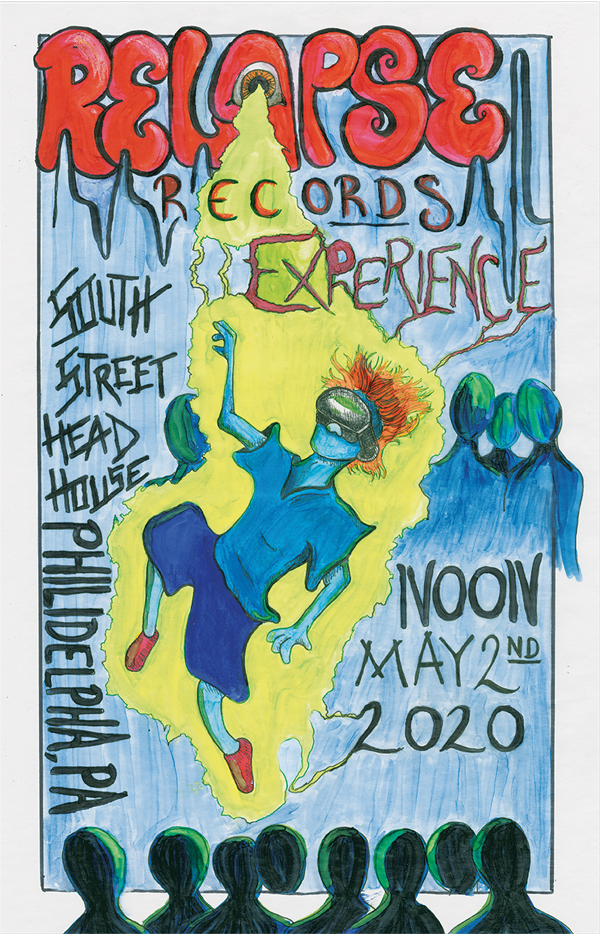 RELAPSE
RECORDS
EXPERIENCE
SOUTH
STREET
HEAD
HOUSE
PHILIDELPHA, PA
NOON
MAY 2ND
2020